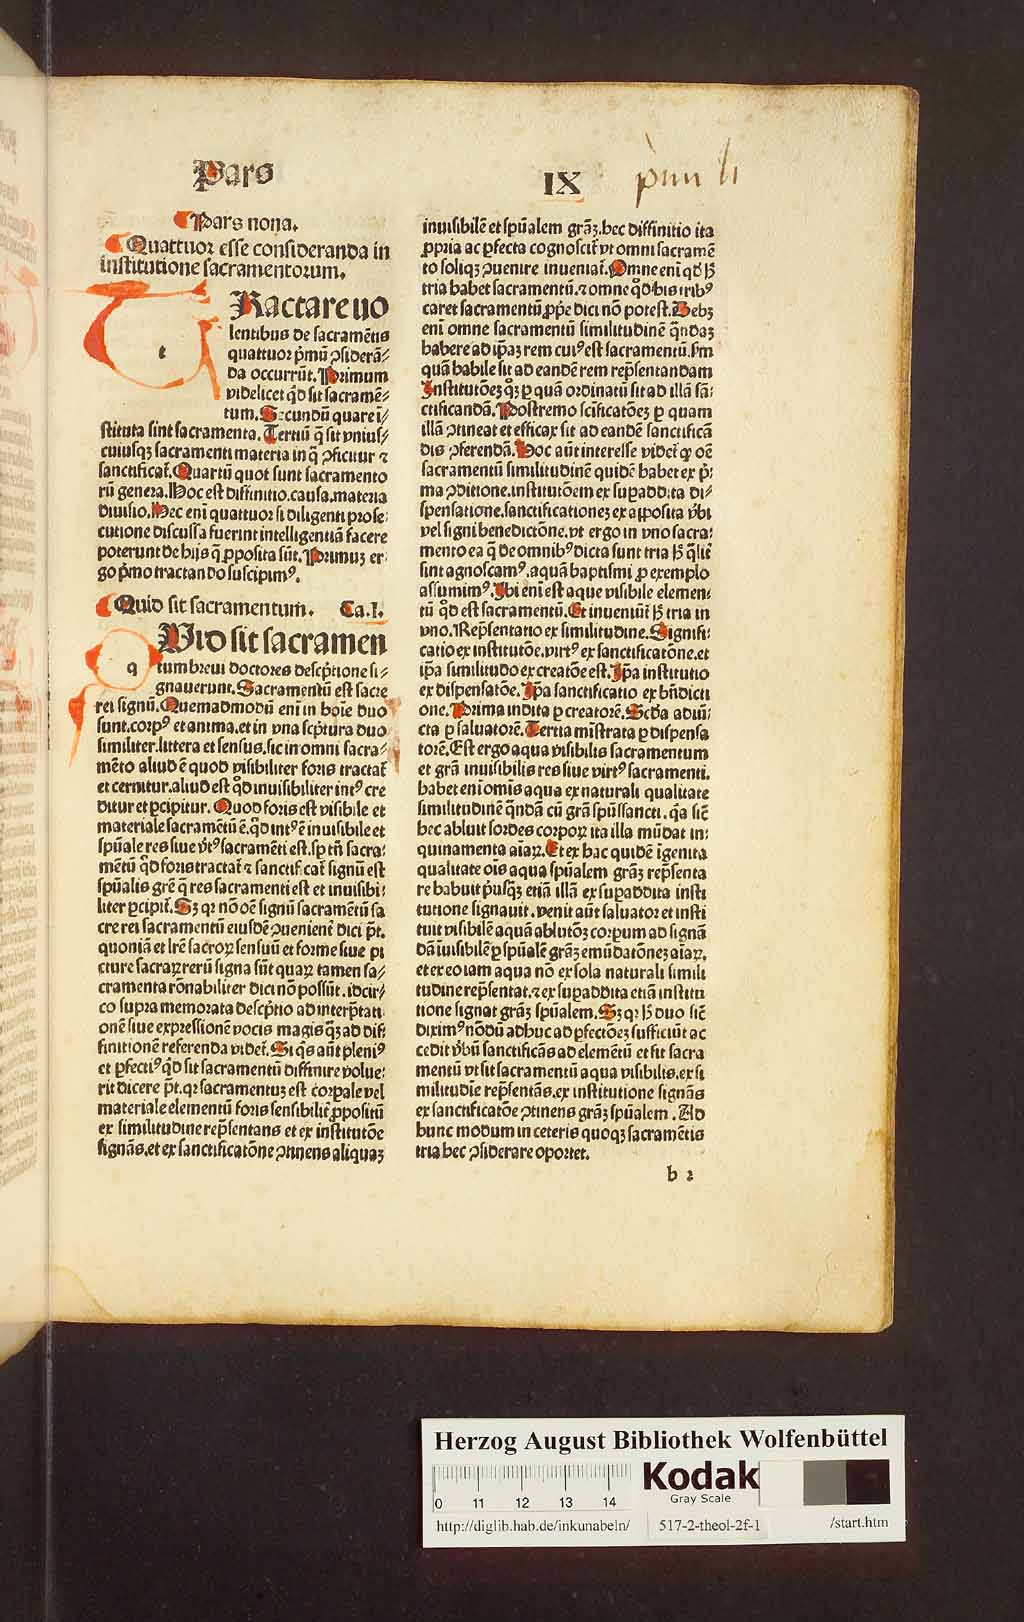 Pars
IX
Pars nona.
Quattuor esse consideranda in
institutione sacramentorum.
TRactare uo
lentibus de sacramẽtis
quattuor p̃mũ ꝯsiderã⸗
da occurrũt. Primum
videlicet qd̃ sit sacramẽ⸗
tum. Secundũ quare i⸗
stituta sint sacramenta. Tertiũ q̃ sit vnius⸗
cuiusqꝫ sacramenti materia in q̃ ꝯficitur ⁊
sanctificat̃. Quartũ quot sunt sacramento
rũ genera. Hoc est diffinitio. causa. materia
diuisio. Hec eni quattuor si diligenti prose⸗
cutione discussa fuerint intelligentiã facere
poterunt de hijs q̃ ꝓposita sũt. Primuꝫ er⸗
go p̃mo tractando suscipimꝰ.
Quid sit sacramentum. Ca.I.
qVid sit sacramen
tum breui doctores descp̃tione si⸗
gnauerunt. Sacramentũ est sacre
rei signũ. Quemadmodũ eni in hoĩe duo
sunt. corpꝰ et anima. et in vna scp̃tura duo
similiter. littera et sensus. sic in omni sacra⸗
mẽto aliud ẽ quod visibiliter foris tractat̃
et cernitur. aliud est qd̃ inuisibiliter intꝰ cre
ditur et ꝑcipitur. Quod foris est visibile et
materiale sacramẽtũ ẽ. qd̃ intꝰ ẽ inuisibile et
spũale res siue v̾tꝰ sacramẽti est. sp tñ sacra⸗
mẽtũ qd̃ foris tractat̃ ⁊ sanctificat̃ signũ est
spũalis grẽ q̃ res sacramenti est et inuisibi⸗
liter ꝑcipit̃. Sꝫ qꝛ nõ oẽ signũ sacramẽtũ sa
cre rei sacramentũ eiusdẽ ꝯuenient̃ dici p̃t.
quoniã et lrẽ sacroꝝ sensuũ et forme siue pi
cture sacraꝝ rerũ signa sũt quaꝝ tamen sa⸗
cramenta rõnabiliter dici nõ possũt. idcir⸗
co supra memorata descp̃tio ad interp̃tati
onẽ siue expressionẽ vocis magis qꝫ ad dif⸗
finitionẽ referenda videt̃. Si q̃s aũt pleniꝰ
et ꝑfectiꝰ qd̃ sit sacramentũ diffinire volue⸗
rit dicere p̃t. qꝛ sacramentuꝫ est corꝑale vel
materiale elementũ foris sensibilit̃ ꝓpositũ
ex similitudine rep̃sentans et ex institutõe
signãs. et ex sanctificatõne ꝯtinens aliquaꝫ
inuisibilẽ et spũalem grãꝫ. hec diffinitio ita
ꝓpria ac ꝑfecta cognoscit̃ vt omni sacramẽ
to soliqꝫ ꝯuenire inueniat̃. Omne eni qd̃ hꝫ
tria habet sacramentũ. ⁊ omne qd̃ his tribꝰ
caret sacramentũ ꝓp̃e dici nõ potest. Debꝫ
eni omne sacramentũ similitudinẽ qñdaꝫ
habere ad ip̃aꝫ rem cuiꝰ est sacramentũ. sm̃
quã habile sit ad eandẽ rem rep̃sentandam
Institutõeꝫ qꝫ ꝑ quã ordinatũ sit ad illã sã⸗
ctificandã. Postremo scificatõeꝫ ꝑ quam
illã ꝯtineat et efficax sit ad eandẽ sanctificã
dis ꝯferendã. Hoc aũt interesse videt̃ qꝫ oẽ
sacramentũ similitudinẽ quidẽ habet ex p̃⸗
ma ꝯditione. institutõem ex suꝑaddita di⸗
spensatione. sanctificationeꝫ ex apposita v̾bi
vel signi benedictõne. vt ergo in vno sacra⸗
mento ea q̃ de omnibꝰ dicta sunt tria hꝫ q̃lit̃
sint agnoscamꝰ. aquã baptismi ꝓ exemplo
assumimꝰ. Ibi eni est aque visibile elemen⸗
tũ qd̃ est sacramentũ. Et inueniũt hꝫ tria in
vno. Rep̃sentatio ex similitudine. Signifi⸗
catio ex institutõe. virtꝰ ex sanctificatõne. et
ip̃a similitudo ex creatõe est. Ip̃a institutio
ex dispensatõe. Ip̃a sanctificatio ex bñdicti
one. Prima indita ꝑ creatorẽ. Scd̃a adiũ⸗
cta ꝑ saluatorẽ. Tertia mĩstrata ꝑ dispensa
torẽ. Est ergo aqua visibilis sacramentum
et grã inuisibilis res siue virtꝰ sacramenti.
habet eni oĩnis aqua ex naturali qualitate
similitudinẽ qñdã cũ grã spũssancti. qꝛ sic̃
hec abluit sordes corpoꝝ ita illa mũdat in⸗
quinamenta aĩaꝝ. Et ex hac quidẽ ĩgenita
qualitate oĩs aqua spũalem grãꝫ rep̃senta
re habuit p̃usqꝫ etiã illã ex suꝑaddita insti
tutione signauit. venit aũt saluator et insti
tuit visibilẽ aquã ablutõꝫ corꝑum ad signã
dã ĩuisibilẽ ꝑ spũalẽ grãꝫ emũdatõneꝫ aĩaꝝ.
et ex eo iam aqua nõ ex sola naturali simili
tudine rep̃sentat. ⁊ ex suꝑaddita etiã institu
tione signat grãꝫ spũalem. Sꝫ qꝛ hꝫ duo sic̃
diximꝰ nõdũ adhuc ad ꝑfectõeꝫ sufficiũt ac
cedit v̾bũ sanctificãs ad elemẽtũ et fit sacra
mentũ vt sit sacramentũ aqua visibilis. ex si
militudĩe rep̃sentãs. ex institutione signãs
ex sanctificatõe ꝯtinens grãꝫ spũalem. Ad
hunc modum in ceteris quoqꝫ sacramẽtis
tria hec ꝯsiderare oportet.
b 2
Herzog August Bibliothek Wolfenbüttel
Kodak
Gray Scale
0 11 12 13 14
http://diglib.hab.de/inkunabeln/ 517-2-theol-2f-1 /start.htm